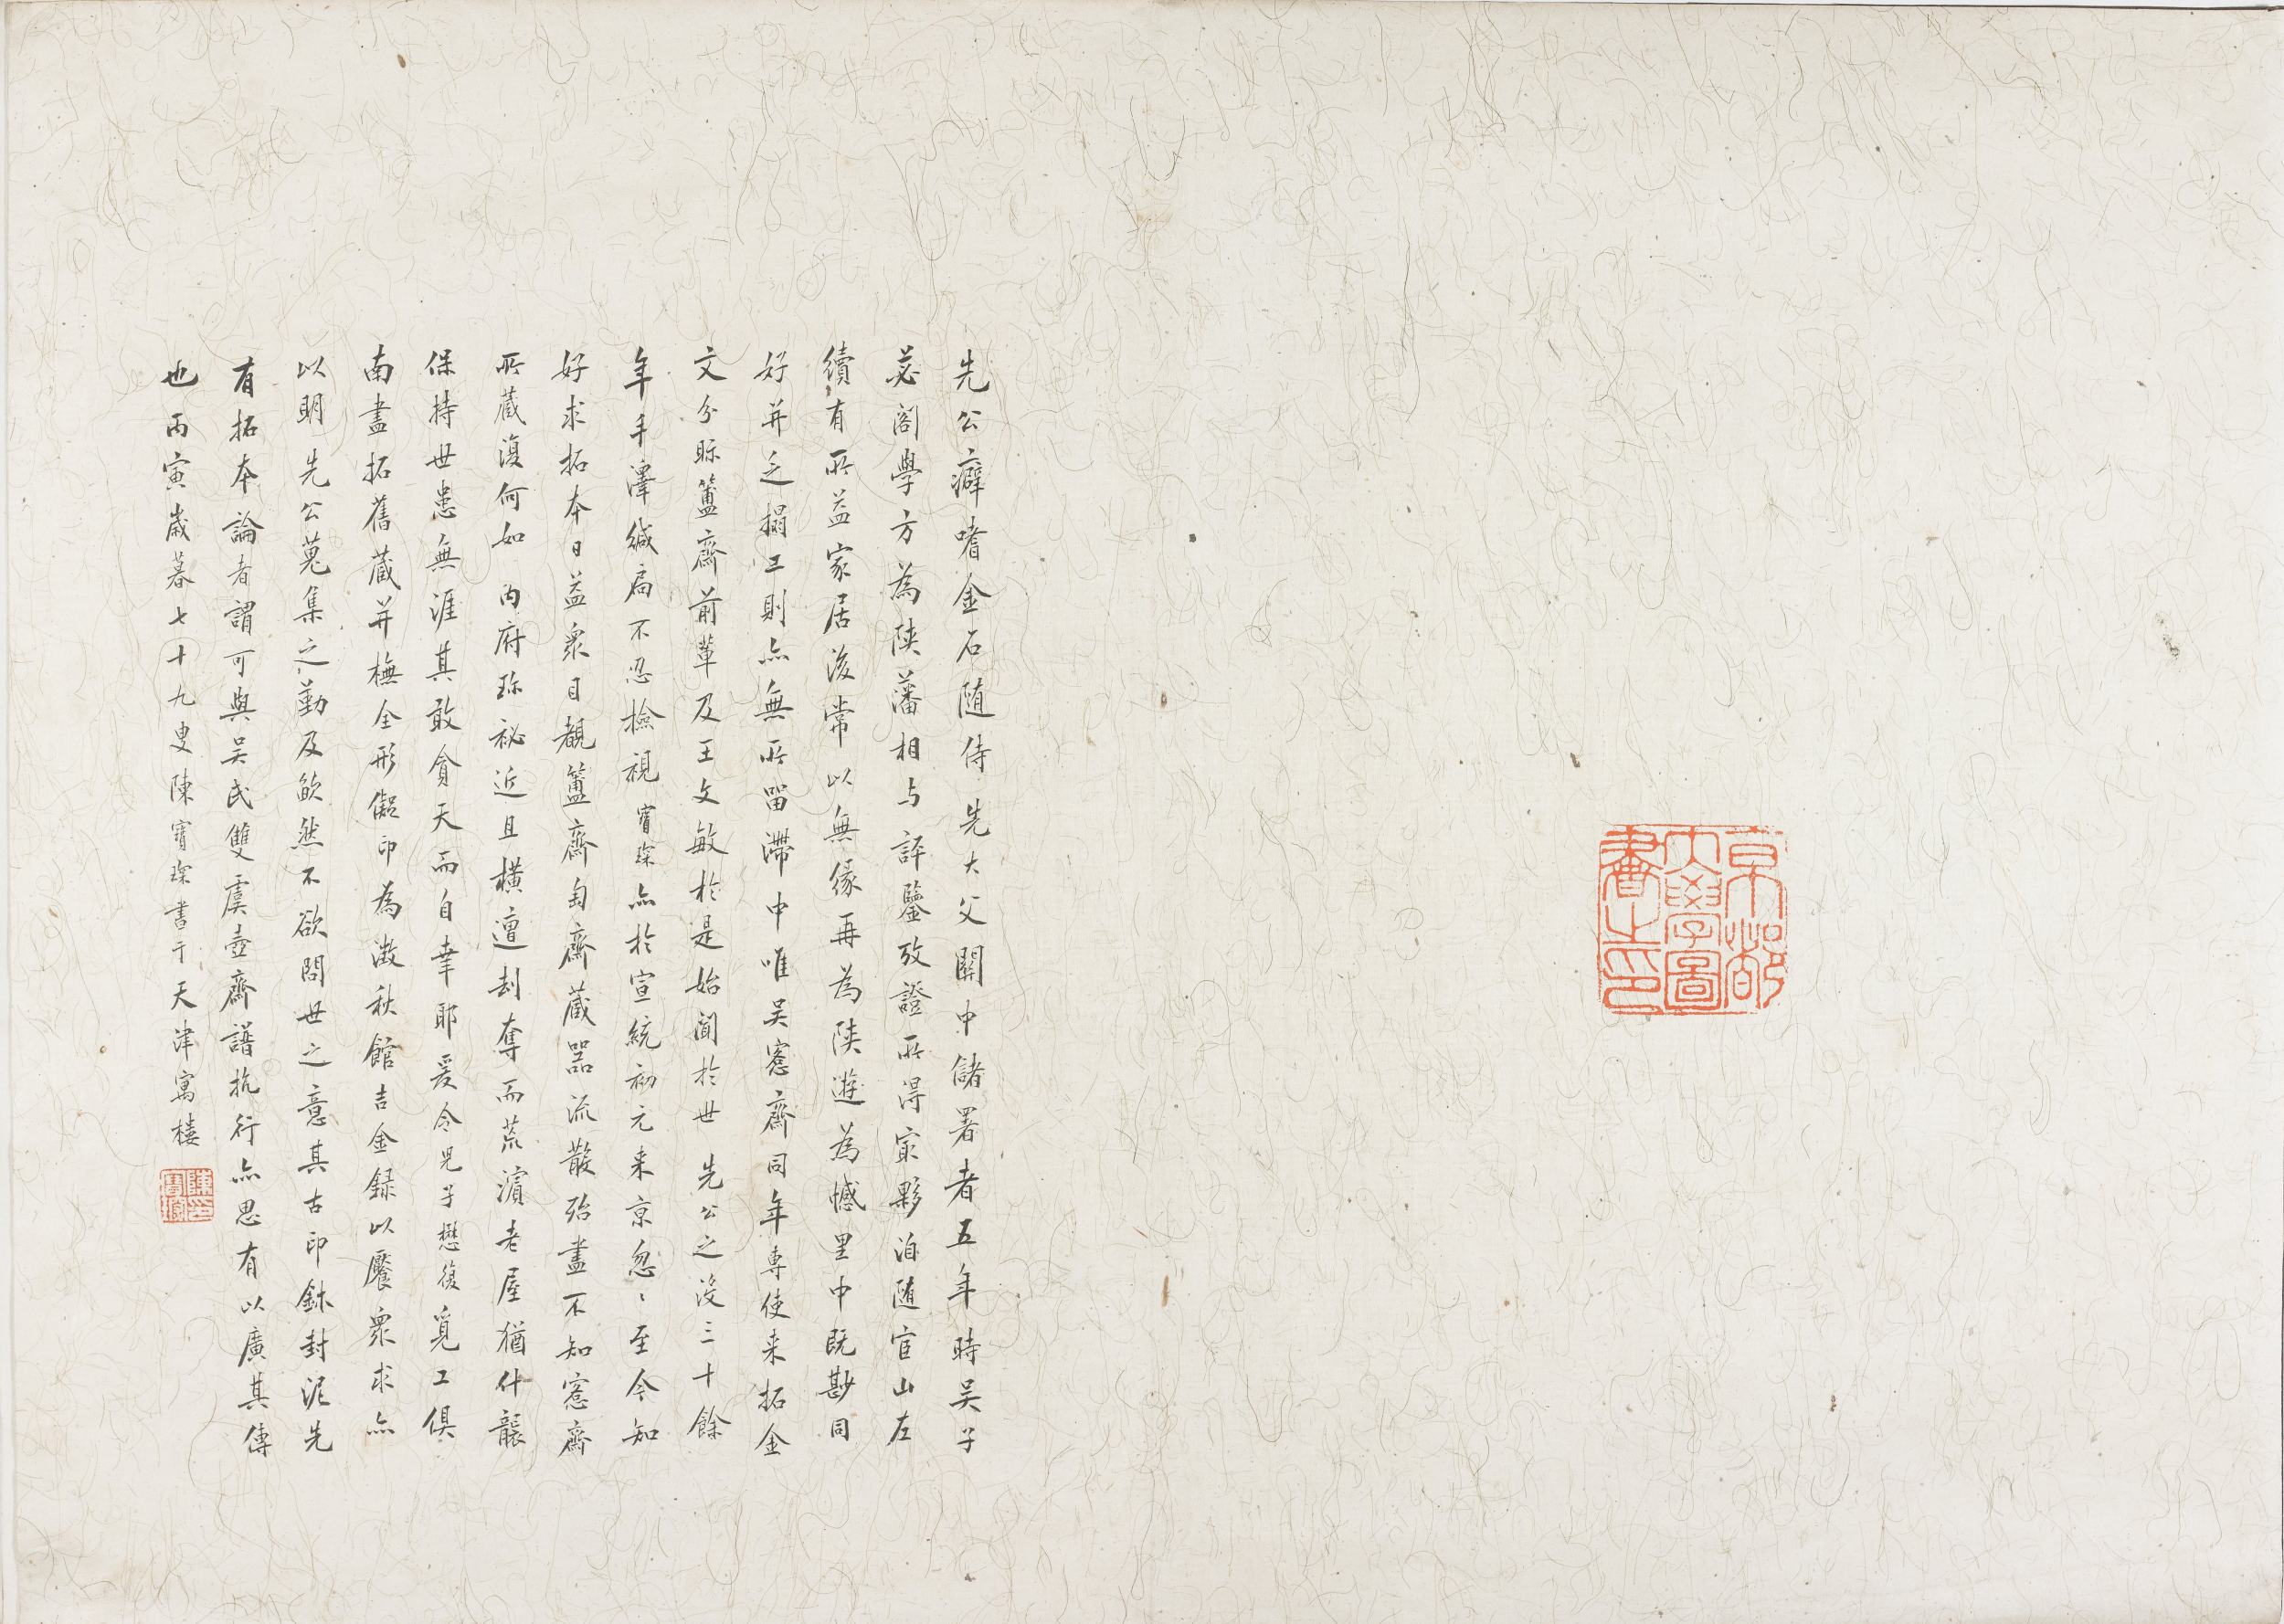 京都
大學圖
書之印
先公癖嗜金石随侍先大父關中儲署者五年時吴子
苾閣學方為陕藩相与評鑒攷證所得㝡夥洎随宦山左
續有所益家居後常以無緣再為陕遊為憾里中既尠同
好并乏搨工則亦無所留滯中唯吴愙齋同年專使来拓金
文分眎簠齋前軰及王文敏於是始聞於世先公之没三十餘
年手澤緘扃不忍檢視寳琛亦於宣統初元来京忽〻至今知
好求拓本日益衆目覩簠齋匋齋蔵器流散殆盡不知愙齋
所蔵復何如内府珎祕近且横遭刦奪而荒濵老屋猶什襲
保持世患無涯其敢貪天而自幸耶爰令兒子懋復覓工俱
南盡拓舊蔵并橅全形儷印為澂秋館吉金録以饜衆求亦
以明先公蒐集之勤及欿然不欲問世之意其古印鉥封泥先
有拓本論者謂可與吴氏雙虞壺齋譜抗行亦思有以廣其傳
也丙寅歲暮七十九叟陳寳琛書于天津寓樓
陳印
寶琛